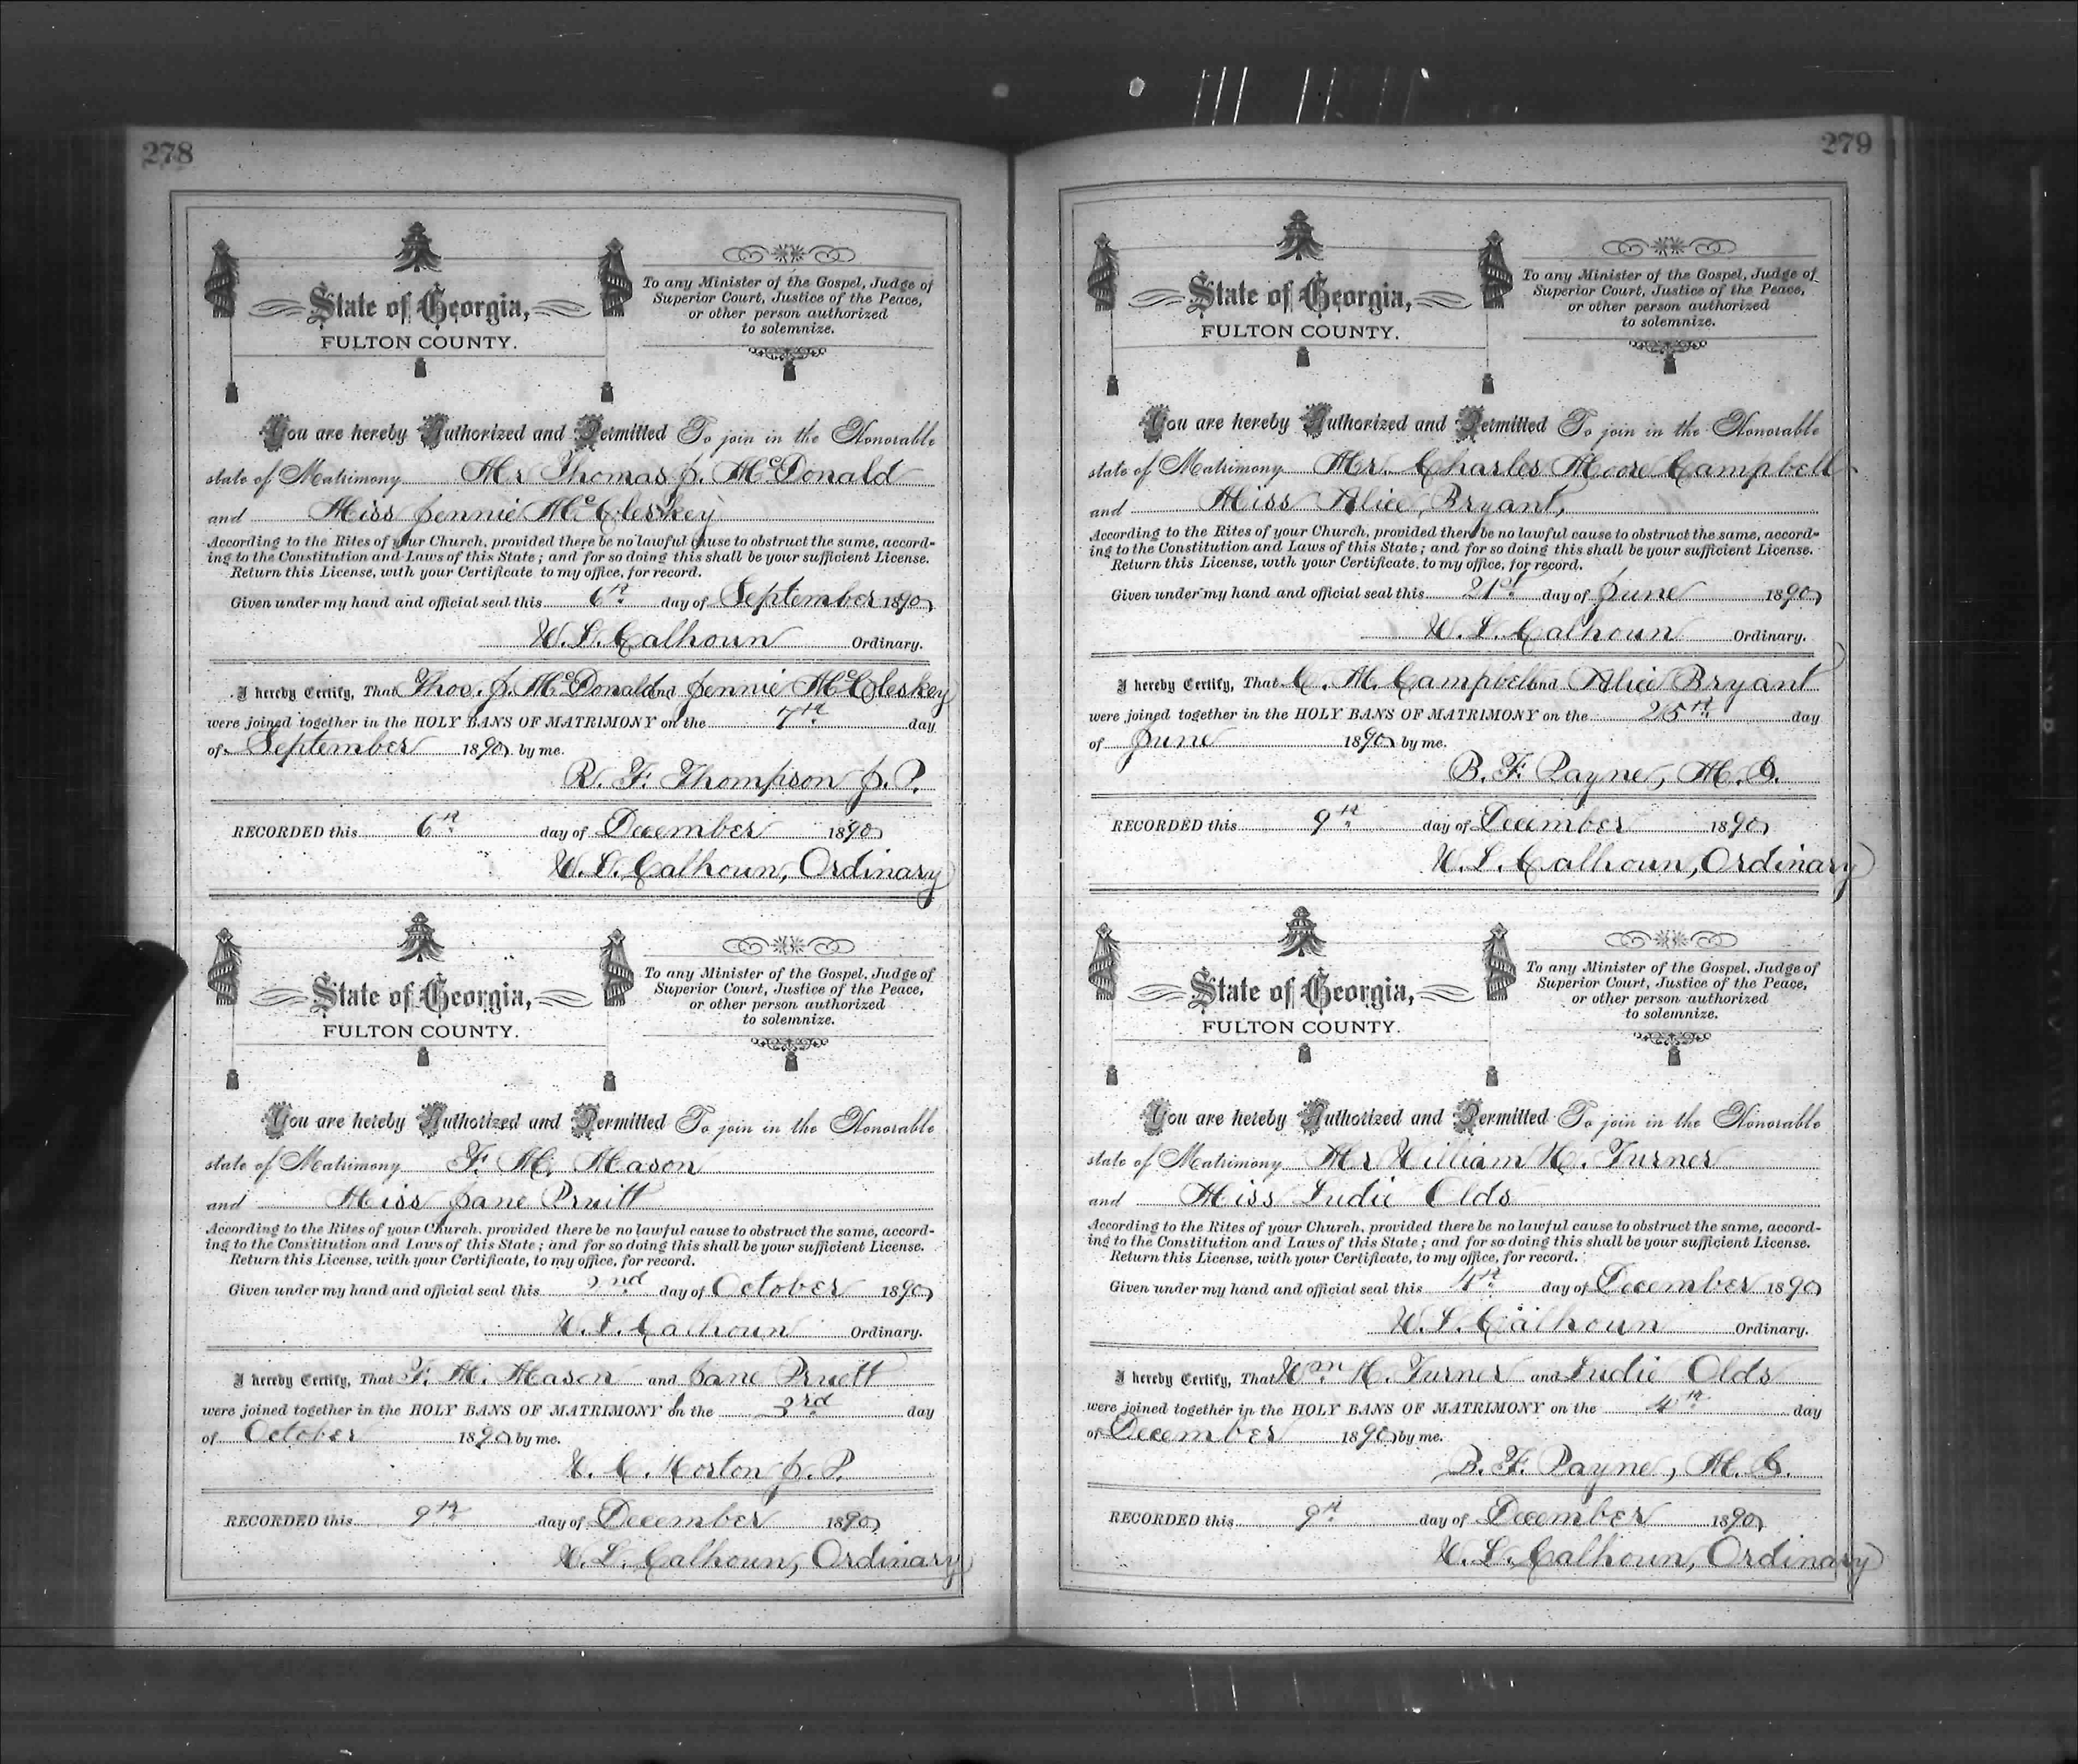 278
State of Georgia,
FULTON COUNTY.
To any Minister of the Gospel, Judge of
Superior Court, Justice of the Peace,
or other person authorized
to solemnize.
You are hereby Authorized and Permitted To join in the Honorable
state of Matrimony Mr Thomas J. McDonald
and Miss Jennie McCleskey
According to the Rites of your Church, provided there be no lawful cause to obstruct the same, accord-
ing to the Constitution and Laws of this State; and for so doing this shall be your sufficient License.
Return this License, with your Certificate to my office, for record.
Given under my hand and official seal this 6th day of September 1890
W. L. Calhoun Ordinary.
I hereby Certify, That Thos. J. McDonald and Jennie McCleskey
were joined together in the HOLY BANS OF MATRIMONY on the 7th day
of September 1890 by me.
R. F. Thompson J. P.
RECORDED this 6th day of December 1890
W. L. Calhoun, Ordinary
State of Georgia,
FULTON COUNTY.
To any Minister of the Gospel, Judge of
Superior Court, Justice of the Peace,
or other person authorized
to solemnize.
You are hereby Authorized and Permitted To join in the Honorable
state of Matrimony F. M. Mason
and Miss Jane Pruitt
According to the Rites of your Church, provided there be no lawful cause to obstruct the same, accord-
ing to the Constitution and Laws of this State; and for so doing this shall be your sufficient License.
Return this License, with your Certificate, to my office, for record.
Given under my hand and official seal this 2nd day of October 1890
W. L. Calhoun Ordinary.
I hereby Certify, That F. M. Mason and Jane Pruett
were joined together in the HOLY BANS OF MATRIMONY on the 3rd day
of October 1890 by me.
Horton J. P.
RECORDED this 9th day of December 1890
W. L. Calhoun, Ordinary
279
State of Georgia,
FULTON COUNTY.
To any Minister of the Gospel, Judge of
Superior Court, Justice of the Peace,
or other person authorized
to solemnize.
You are hereby Authorized and Permitted To join in the Honorable
state of Matrimony Mr. Charles Moore Campbell
and Miss Alice Bryant,
According to the Rites of your Church, provided there be no lawful cause to obstruct the same, accord-
ing to the Constitution and Laws of this State; and for so doing this shall be your sufficient License.
Return this License, with your Certificate, to my office, for record.
Given under my hand and official seal this 21st day of June 1890
W. L. Calhoun Ordinary.
I hereby Certify, That C. M. Campbell and Alice Bryant
were joined together in the HOLY BANS OF MATRIMONY on the 25th day
of June 1890 by me.
B. F. Payne, M. G.
RECORDED this 9th day of December 1890
W. L. Calhoun, Ordinary
State of Georgia,
FULTON COUNTY.
To any Minister of the Gospel, Judge of
Superior Court, Justice of the Peace,
or other person authorized
to solemnize.
You are hereby Authorized and Permitted To join in the Honorable
state of Matrimony Mr William H. Turner
and Miss Ludie Olds
According to the Rites of your Church, provided there be no lawful cause to obstruct the same, accord-
ing to the Constitution and Laws of this State; and for so doing this shall be your sufficient License.
Return this License, with your Certificate, to my office, for record.
Given under my hand and official seal this 4th day of December 1890
W. L. Calhoun Ordinary.
I hereby Certify, That Wm H. Turner and Ludie Olds
were joined together in the HOLY BANS OF MATRIMONY on the 4th day
of December 1890 by me.
B. F. Payne, M. G.
RECORDED this 9th day of December 1890
W. L. Calhoun, Ordinary